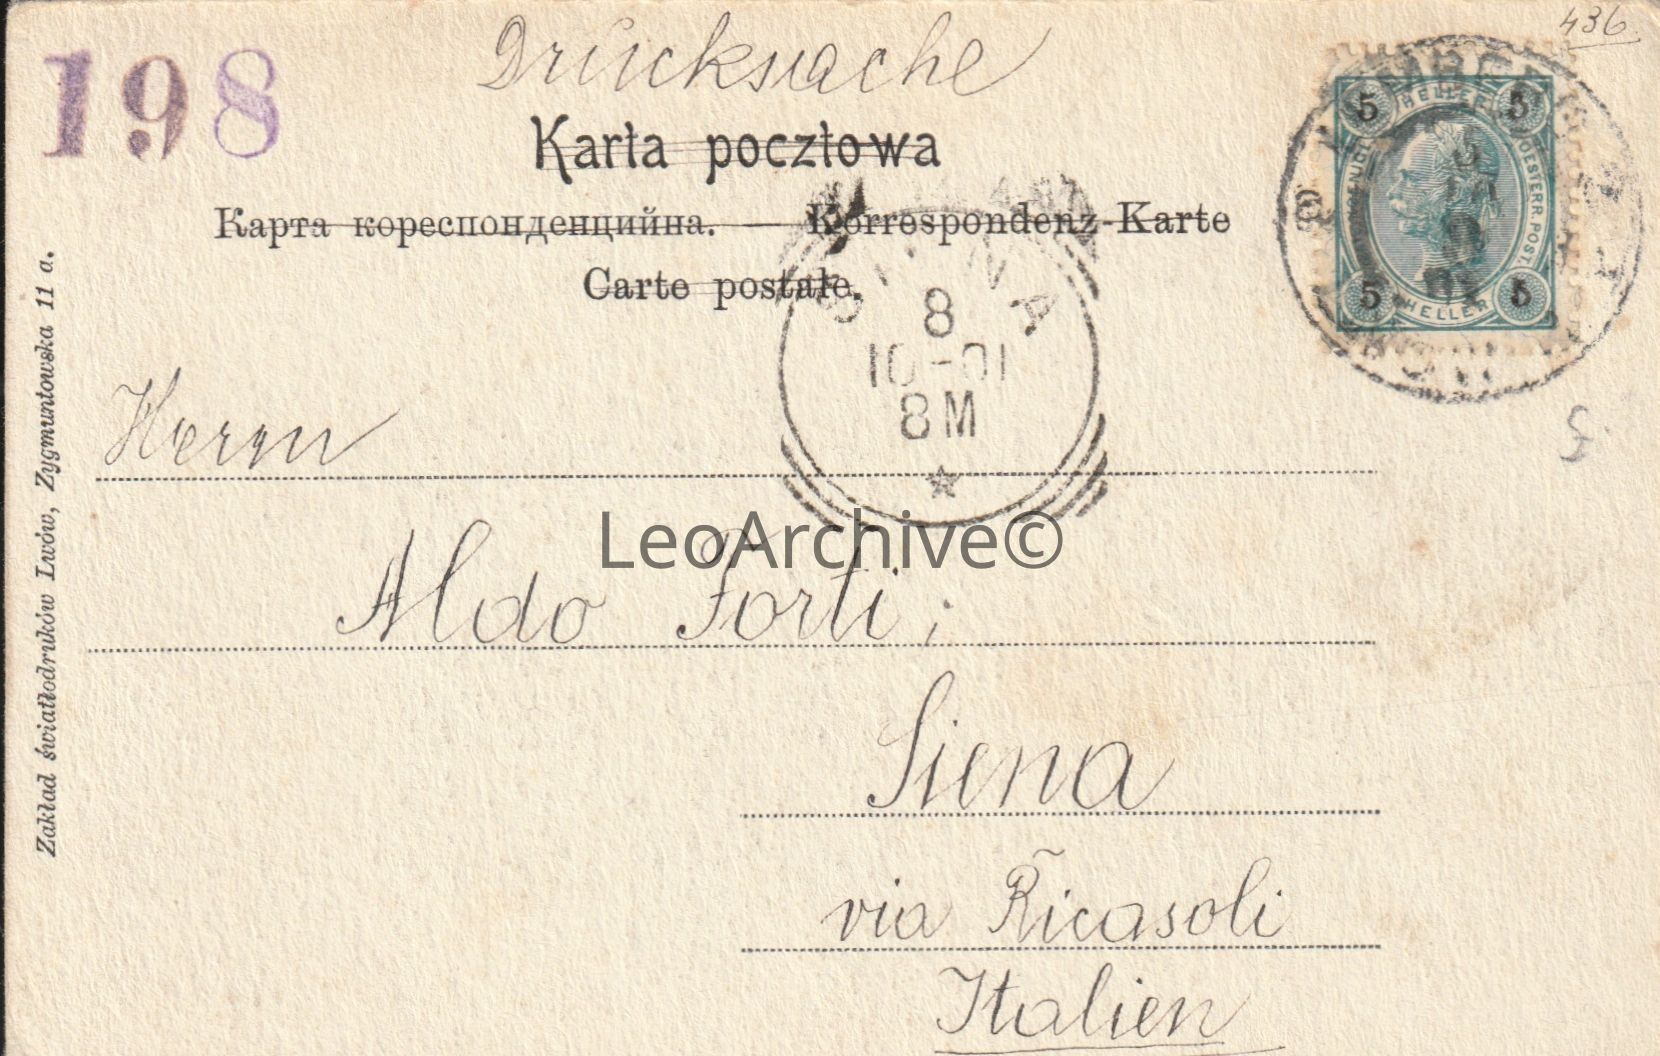 436
198
Drucksache
Karta pocztowa
Карта кореспонденцийна. — Korrespondenz-Karte
Carte postale.
5 HELLER 5
OESTERR. POST.
5 HELLER 5
LEMBERG
SIENA
8
10-01
8M
Herrn
Aldo Forti;
Siena
via Ricasoli
Italien
Zakład światłodruków Lwów, Zygmuntowska 11 a.
LeoArchive©